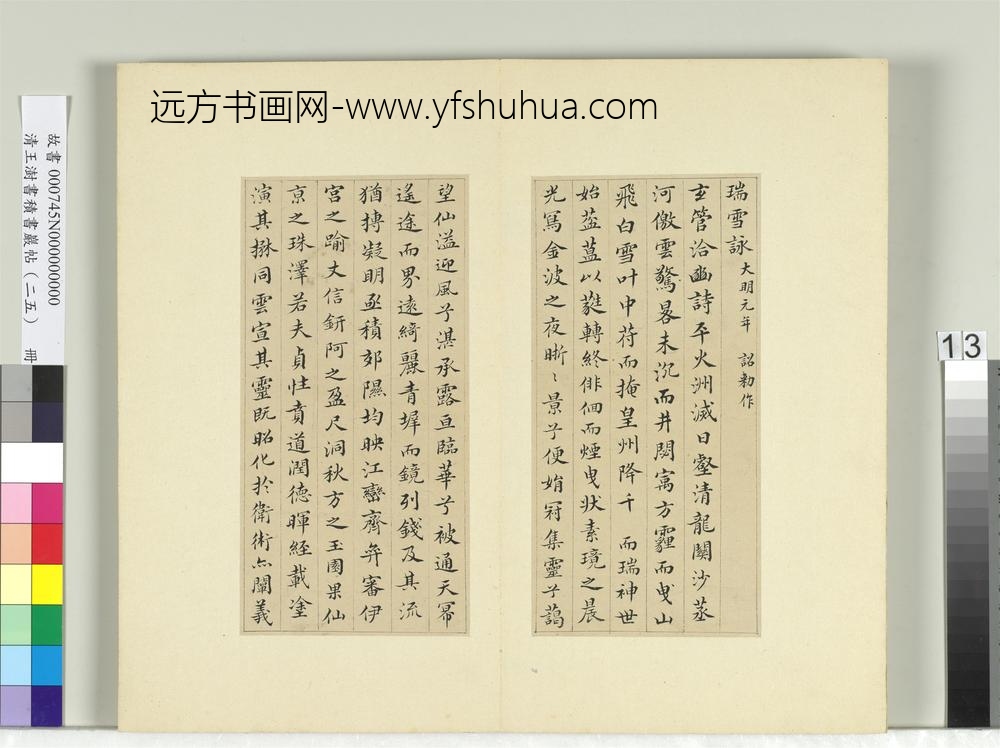 远方书画网-www.yfshuhua.com
故書 000745N000000000
清王澍書積書巖帖（二五） 冊
13
瑞雪詠 大明元年 詔勑作
玄管洽幽詩平火洲滅日壑清龍關沙蒸
河儌雲驚晷未沉而井閟寓方霾而曳山
飛白雪叶中苻而掩皇州降千 而瑞神世
始葐蒀以蕤轉終俳佪而煙曳狀素璄之晨
光寫金波之夜晣〻景兮便娟冠集靈兮藹
望仙溢迎風兮湛承露亘臨華兮被通天冪
遙途而界遠綺麗青墀而鏡列錢及其流
猶摶凝明亟積郊隰均映江巒齊弁審伊
宮之踰丈信鈃阿之盈尺洞秋方之玉園果仙
京之珠澤若夫貞性賁道潤德暉經載塗
演其掰同雲宣其靈既昭化扵衛術亦闡義